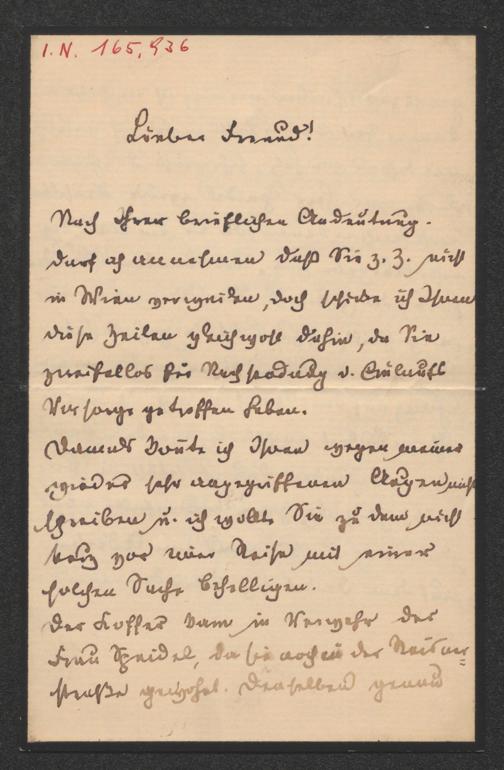 I.N. 165,936
Lieber Freund!
Nach Ihrer brieflichen Andeutung
darf ich annehmen daß Sie z. Z. nicht
in Wien verweilen, doch schicke ich Ihnen
diese Zeilen gleichwohl dahin, da Sie
zweifellos für Nachsendung d. Einlaufs
Vorsorge getroffen haben.
Damals konnte ich Ihnen wegen meiner
wieder sehr angegriffenen Augen nicht
schreiben u. ich wollte Sie zu dem nicht
kurz vor einer Reise mit einer
solchen Sache behelligen.
Der Koffer kam in Verwahr der
Frau Speidel, da sie noch in der Reisner=
straße gewohnt. Denselben genau